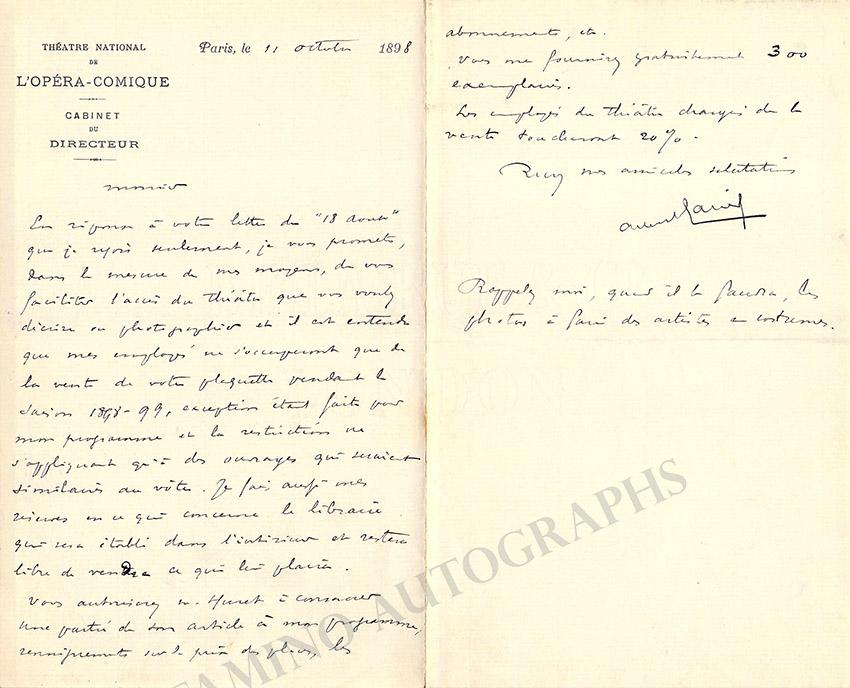 THÉATRE NATIONAL
DE
L'OPÉRA-COMIQUE
CABINET
DU
DIRECTEUR
Paris, le 11 octobre 1898
Monsieur
En réponse à votre lettre du "18 Aout"
que je reçois seulement, je vous promets,
dans la mesure de mes moyens, de vous
faciliter l'accès du théâtre que vous voulez
décrire ou photographier et il est entendu
que mes employés ne s'occuperont que de
la vente de votre plaquette pendant la
saison 1898-99, exception étant faite pour
mon programme et la restriction ne
s'appliquant qu'à des ouvrages qui seraient
similaires au vôtre. Je fais aussi mes
réserves en ce qui concerne le libraire
qui sera établi dans l'intérieur et restera
libre de vendre ce qui lui plaira.
Vous autorisez M. Huret à consacrer
une partie de son article à mon programme,
renseignements sur le prix des places, les
abonnements, etc.
Vous me fournirez gratuitement 300
exemplaires.
Les employés du théâtre chargés de la
vente toucheront 20%.
Recevez mes amicales salutations
Albert Carré
Rappelez moi, quand il le faudra, les
photos à faire des artistes en costumes.
TAMINO AUTOGRAPHS